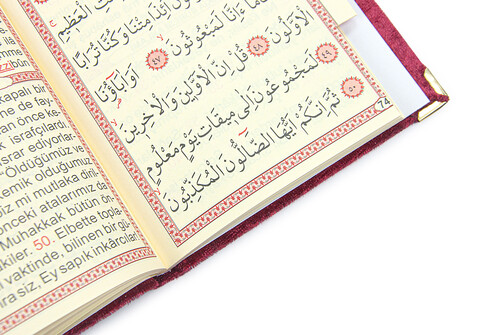 الْعَظِيمِ
أَئِذَا مِتْنَا وَكُنَّا تُرَابًا
ءَاِنَّا لَمَبْعُوثُونَ ٤٧ اَوَاٰبَاؤُنَا
الْاَوَّلُونَ ٤٨ قُلْ اِنَّ الْاَوَّلِينَ وَالْاٰخِرِينَ
٤٩ لَمَجْمُوعُونَ اِلٰى مِيقَاتِ يَوْمٍ مَعْلُومٍ
٥٠ ثُمَّ اِنَّكُمْ اَيُّهَا الضَّالُّونَ الْمُكَذِّبُونَ
74
kapalı bir
me de fay-
dan önce ke-
k israfçılardı.
srar ediyorlar-
"Öldüğümüz ve
kemik olduğumuz
biz mi mutlaka diril-
önceki atalarımız da
Muhakkak bütün ön-
kiler. 50. Elbette topla-
i vaktinde, bilinen bir gü-
ra siz, Ey sapık inkârcılar!